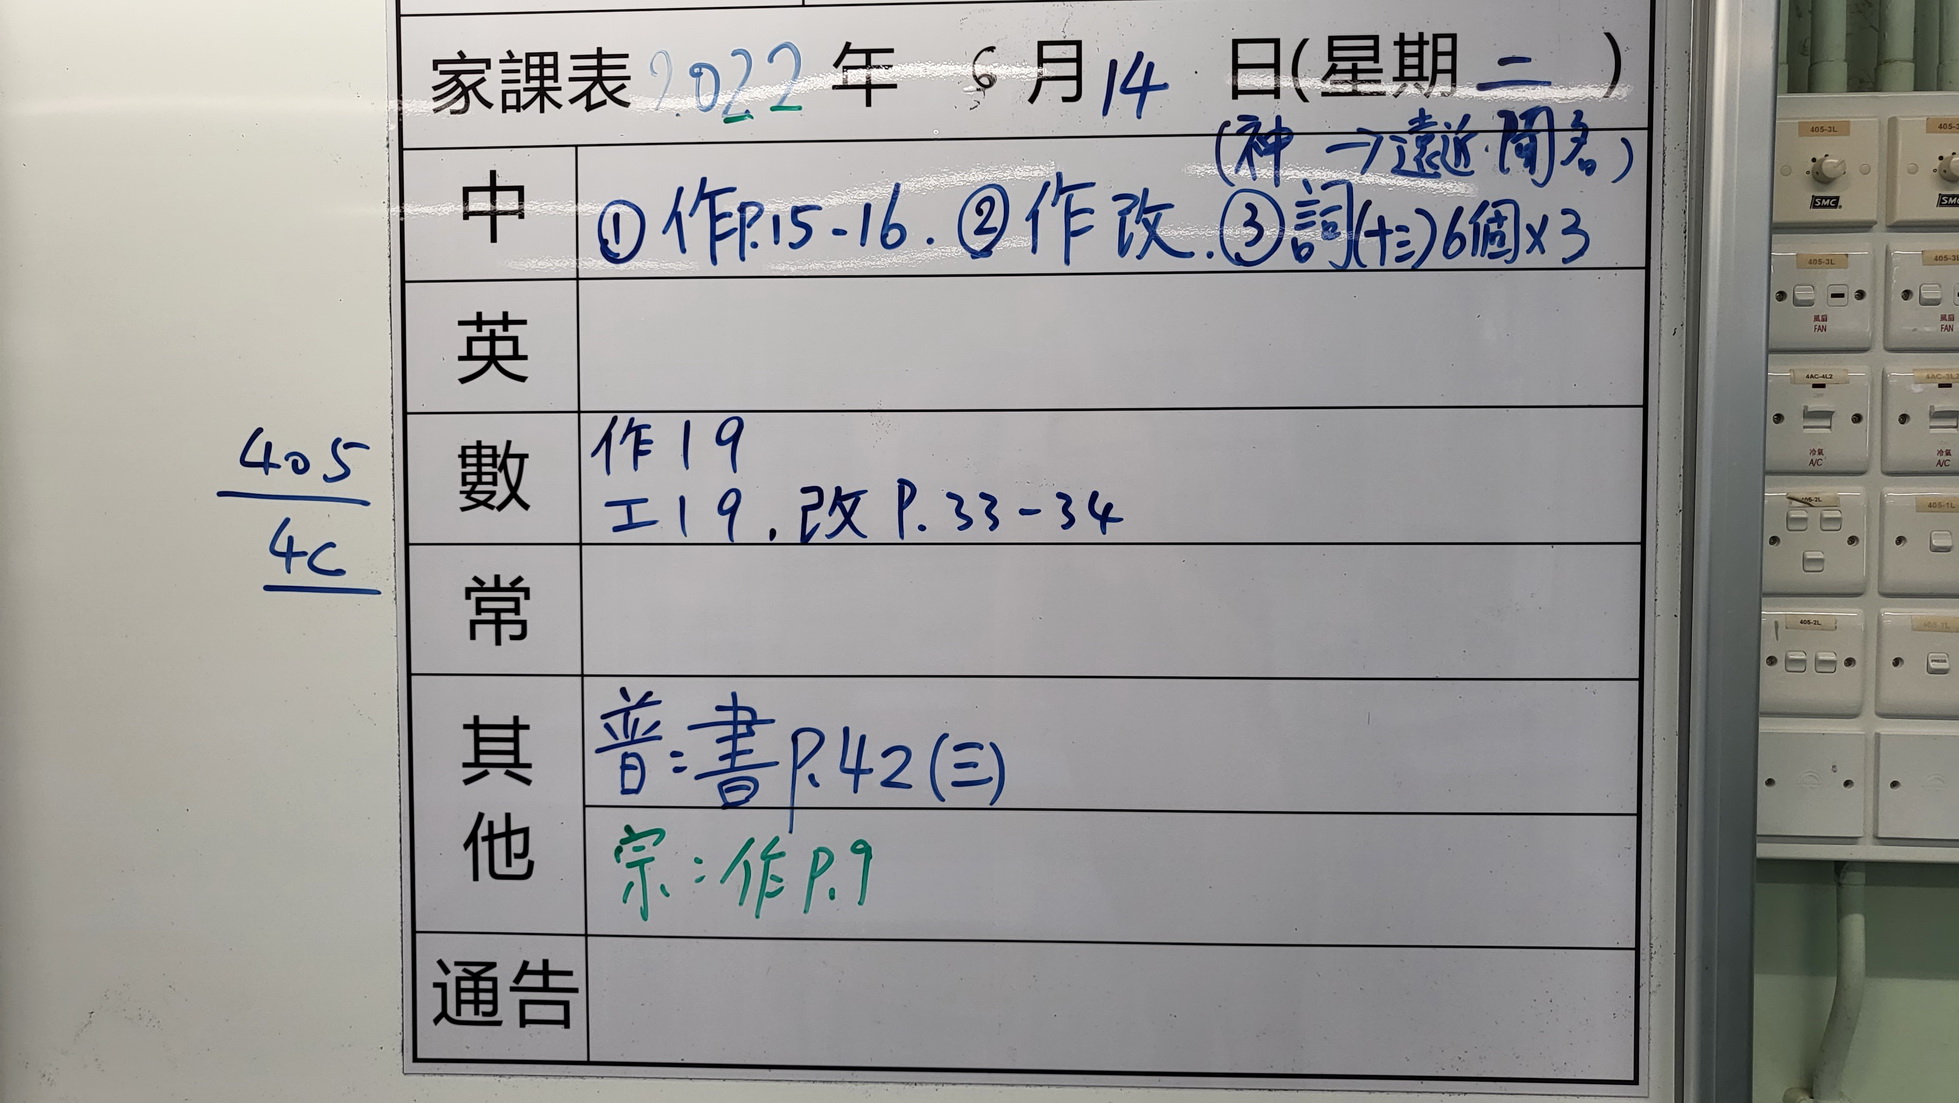 家課表 2022 年 6 月 14 日(星期 二 )
(神 → 遠近聞名)
中 ① 作P.15-16. ② 作改. ③ 詞(十三)6個×3
英
數 作19
工19. 改 P.33-34
常
其他 普:書 P.42(三)
宗:作 P.9
通告
405
4C
405-3L
SMC
405-3L
風扇
FAN
風扇
FAN
4AC-4L2
冷氣
A/C
冷氣
A/C
405-2L
405-1L
405-2L
PRESS